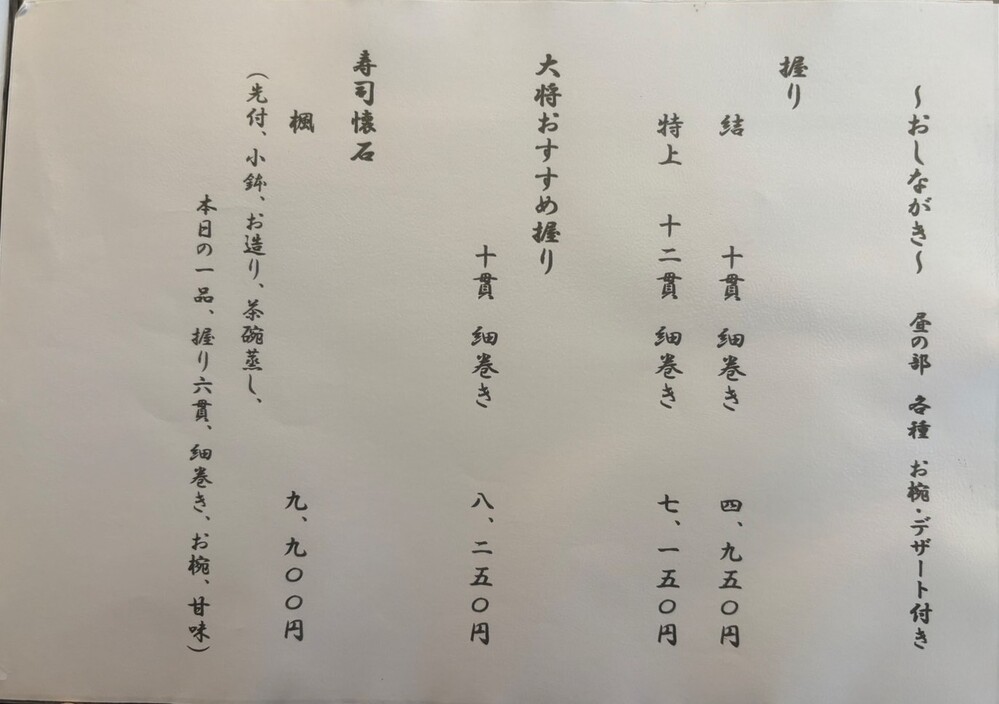 ～おしながき～　昼の部　各種　お椀・デザート付き
握り
結　十貫　細巻き　四、九五〇円
特上　十二貫　細巻き　七、一五〇円
大将おすすめ握り
十貫　細巻き　八、二五〇円
寿司懐石
楓　九、九〇〇円
（先付、小鉢、お造り、茶碗蒸し、
本日の一品、握り六貫、細巻き、お椀、甘味）